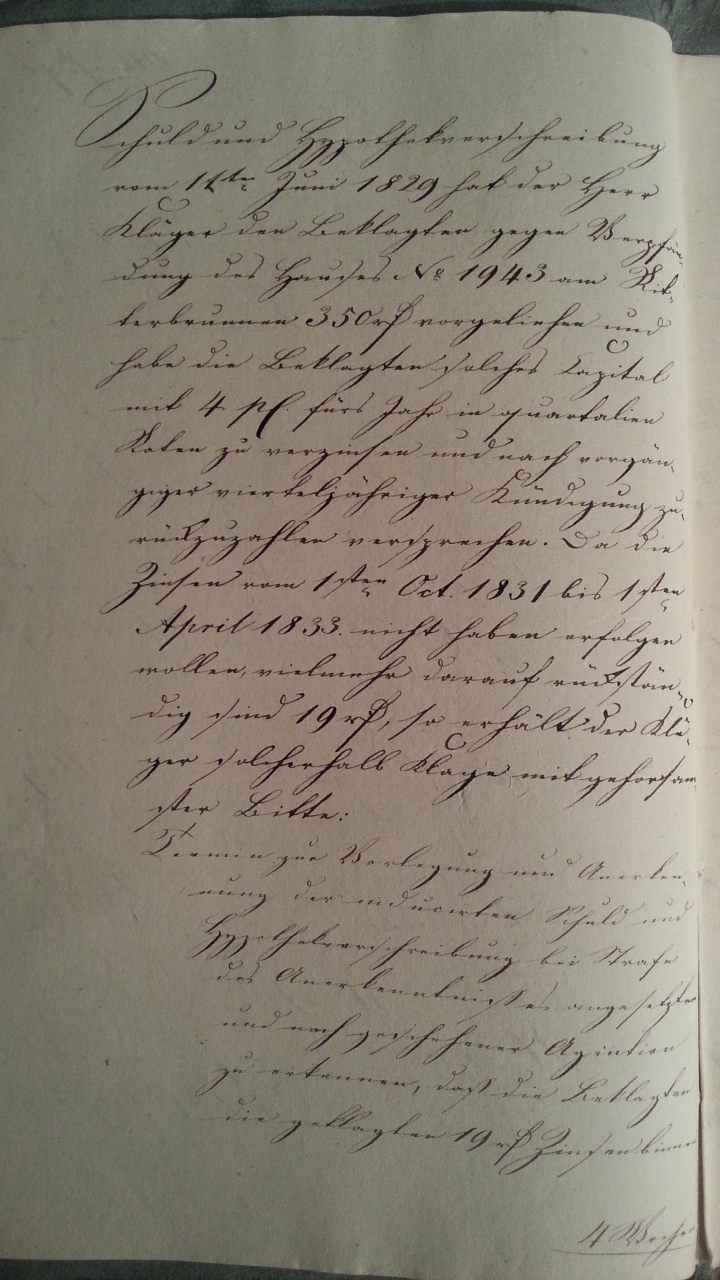 Schuld und Hypothekverschreibung
vom 11ten Juni 1829 hat der Herr
Kläger den Beklagten gegen Verpfän-
dung des Hauses No 1943 am Rit-
terbrunnen 350 rß vorgeliehen und
habe die Beklagten solches Capital
mit 4 pC. fürs Jahr in quartalien
Raten zu verzinsen und nach vorgän-
giger vierteljähriger Kündigung zu-
rückzuzahlen versprechen. Da die
Zinsen vom 1sten Oct. 1831 bis 1sten
April 1833. nicht haben erfolgen
wollen, vielmehr darauf rückstän-
dig sind 19 rß, so erhält der Klä-
ger solcherhalb Klage mit gehorsam-
ster Bitte:
Termin zur Vorlegung und Anerken-
nung der inducirten Schuld und
Hypothekverschreibung bei Strafe
des Anerkenntnisses angesetzten
und nach geschehener
zu erkennen, daß die Beklagten
die geklagten 19 rß Zinsen binnen
4 Wochen